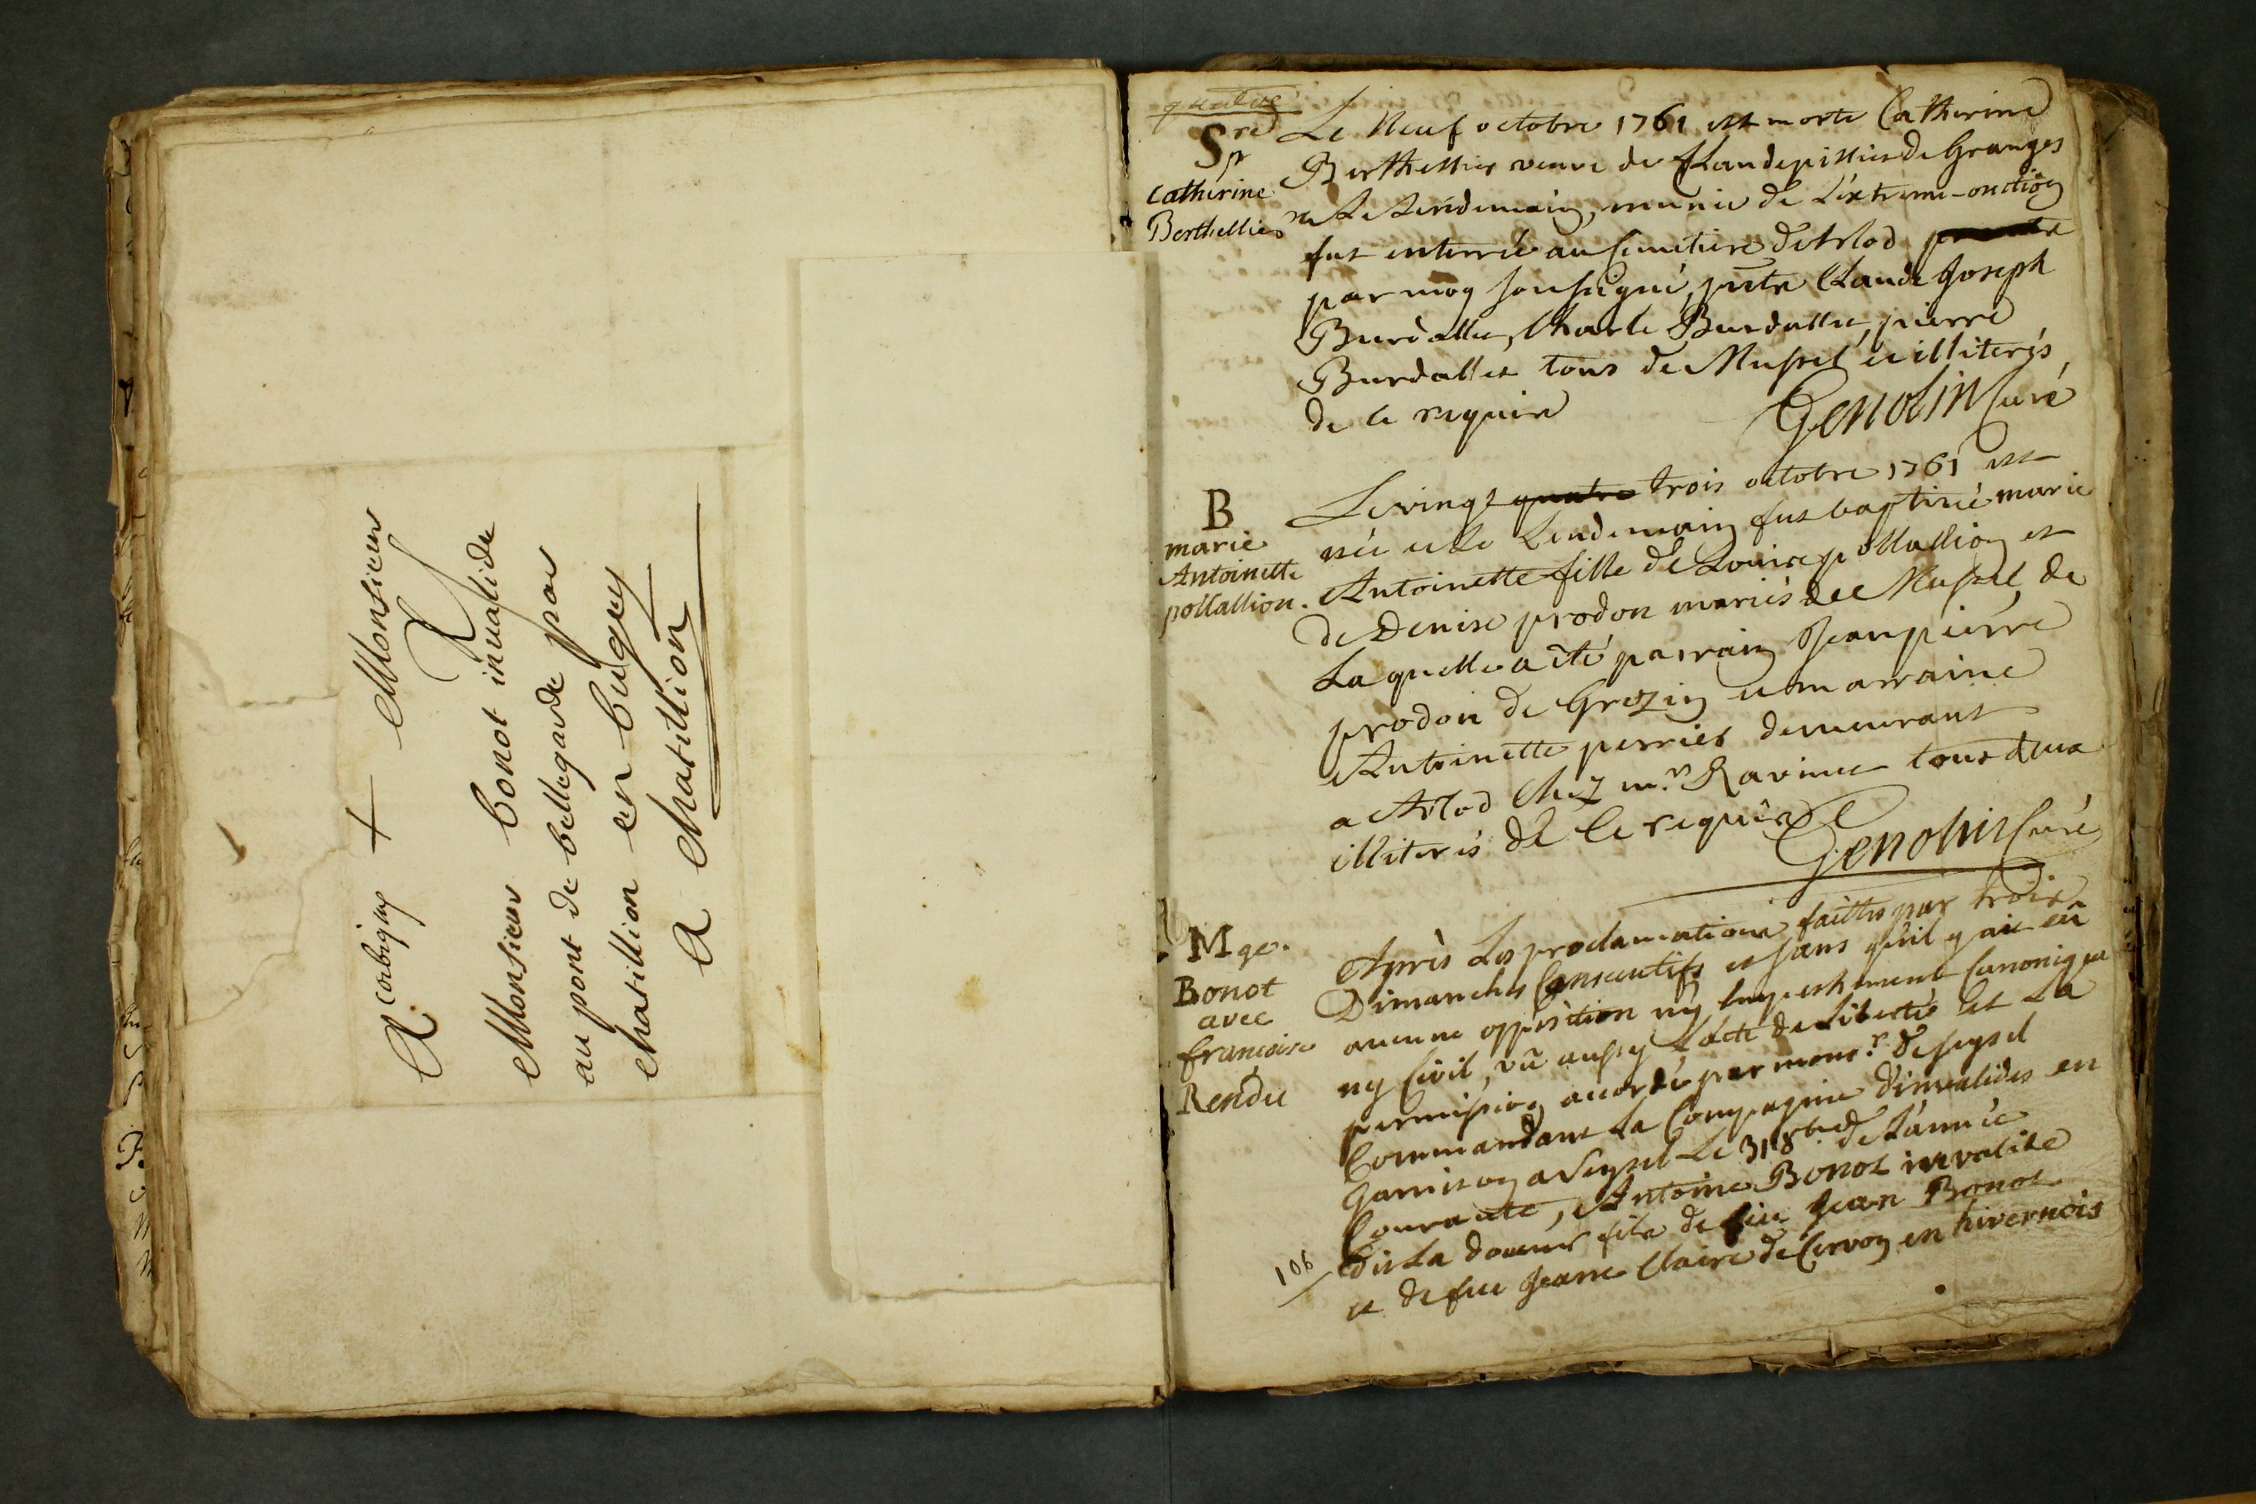 A corbigny + Monsieur
Monsieur bonot inualide
au pont de bellegarde par
chatillion en bugey
a chatillion
Sre
pr
Catherine
Berthellier
Le Neuf octobre 1761 est morte Catherine
Berthellier veuve de Claude pittier de Granges
et Le Lendemain, munie de L'extreme-onction
fut enterrée au Cimetiere d'Arlod
par moy soussigné, pnte Claude Joseph
Burdallet, Charle Burdallet, pierre
Burdallet tous de Mussel et illiterés
de ce require
Genolin Curé
B
marie
Antoinette
pollallion.
Le vingt quatre trois octobre 1761 est
née et le Lendemain fut baptisée marie
Antoinette fille de Louise pollallion et
de Denise prodon mariés de Mussel, de
Laquelle a été parrain Jean pierre
prodon de Grezin et marraine
Antoinette perrier demeurant
a Arlod chez mr. Ravinet tous deux
illiterés de ce require
Genolin Curé
Mge.
Bonot
avec
francoise
Rendu
Après Les proclamations faittes par trois
Dimanches Consecutifs et sans qu'il y ait eü
aucune opposition ny empeschement Canonique
ny Civil, vü aussy L'acte de Liberté et La
permission accordé par monsr. de seyssel
Commandant La Compagnie d'invalides en
Garnison a Seyssel Le 31 8bre de L'année
Courante, Antoine Bonot invalide
dit La douceur fils de feu Jean Bonot
et de feue Jeanne Claire de Cervon en nivernois
106